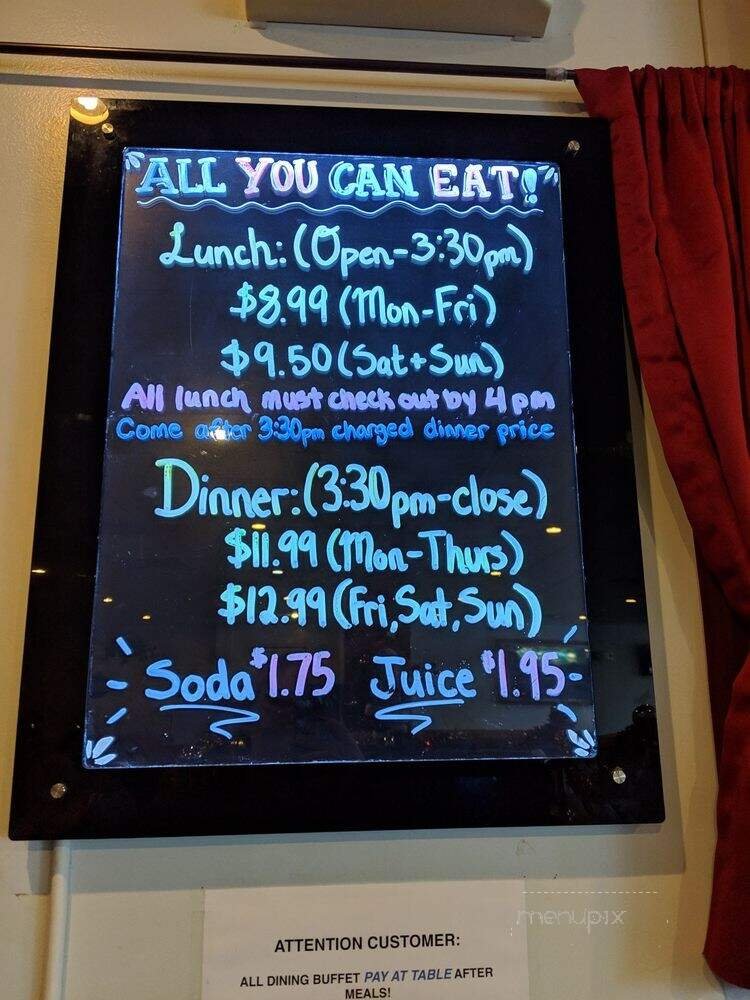 ALL YOU CAN EAT!
Lunch: (Open-3:30pm)
$8.99 (Mon-Fri)
$9.50 (Sat+Sun)
All lunch must check out by 4 pm
Come after 3:30pm charged dinner price
Dinner: (3:30pm-close)
$11.99 (Mon-Thurs)
$12.99 (Fri, Sat, Sun)
Soda $1.75 Juice $1.95
menupix
ATTENTION CUSTOMER:
ALL DINING BUFFET PAY AT TABLE AFTER
MEALS!